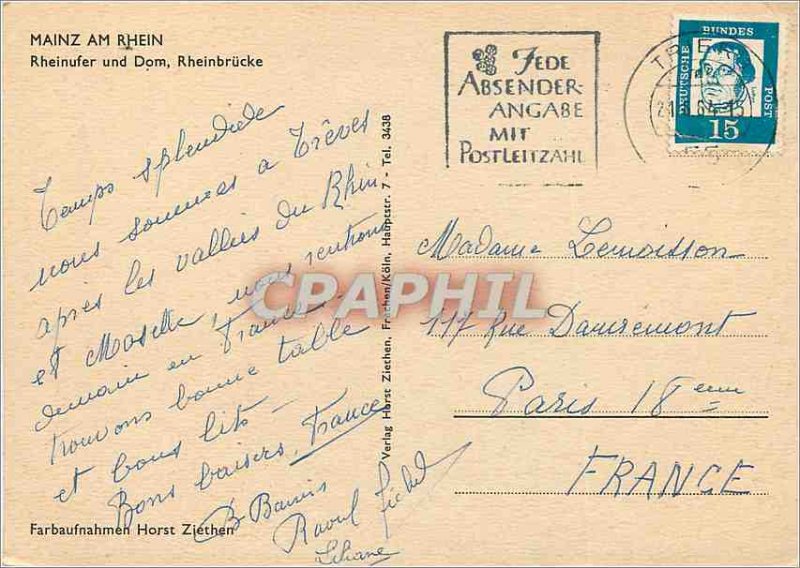 MAINZ AM RHEIN
Rheinufer und Dom, Rheinbrücke
Temps splendide
nous sommes a Trêves
après les vallées du Rhin
et Moselle, nous rentrons
demain en France
trouvons bonne table
et bons lits —
Bons baisers, France
Raoul Michel
Liliane
Farbaufnahmen Horst Ziethen
Verlag Horst Ziethen, Frechen/Köln, Hauptstr. 7 - Tel. 3438
JEDE
ABSENDER-
ANGABE
MIT
POSTLEITZAHL
TRIER
DEUTSCHE BUNDESPOST
15
Madame Lemoisson
117 Rue Damremont
Paris 18 eme
FRANCE
CPAPHIL